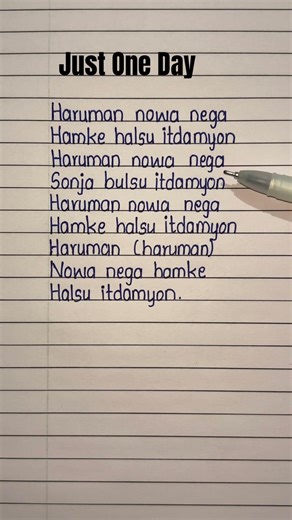 Just One Day
Haruman nowa nega
Hamke halsu itdamyon
Haruman nowa nega
Sonja bulsu itdamyon
Haruman nowa nega
Hamke halsu itdamyon
Haruman (haruman)
Nowa nega hamke
Halsu itdamyon.